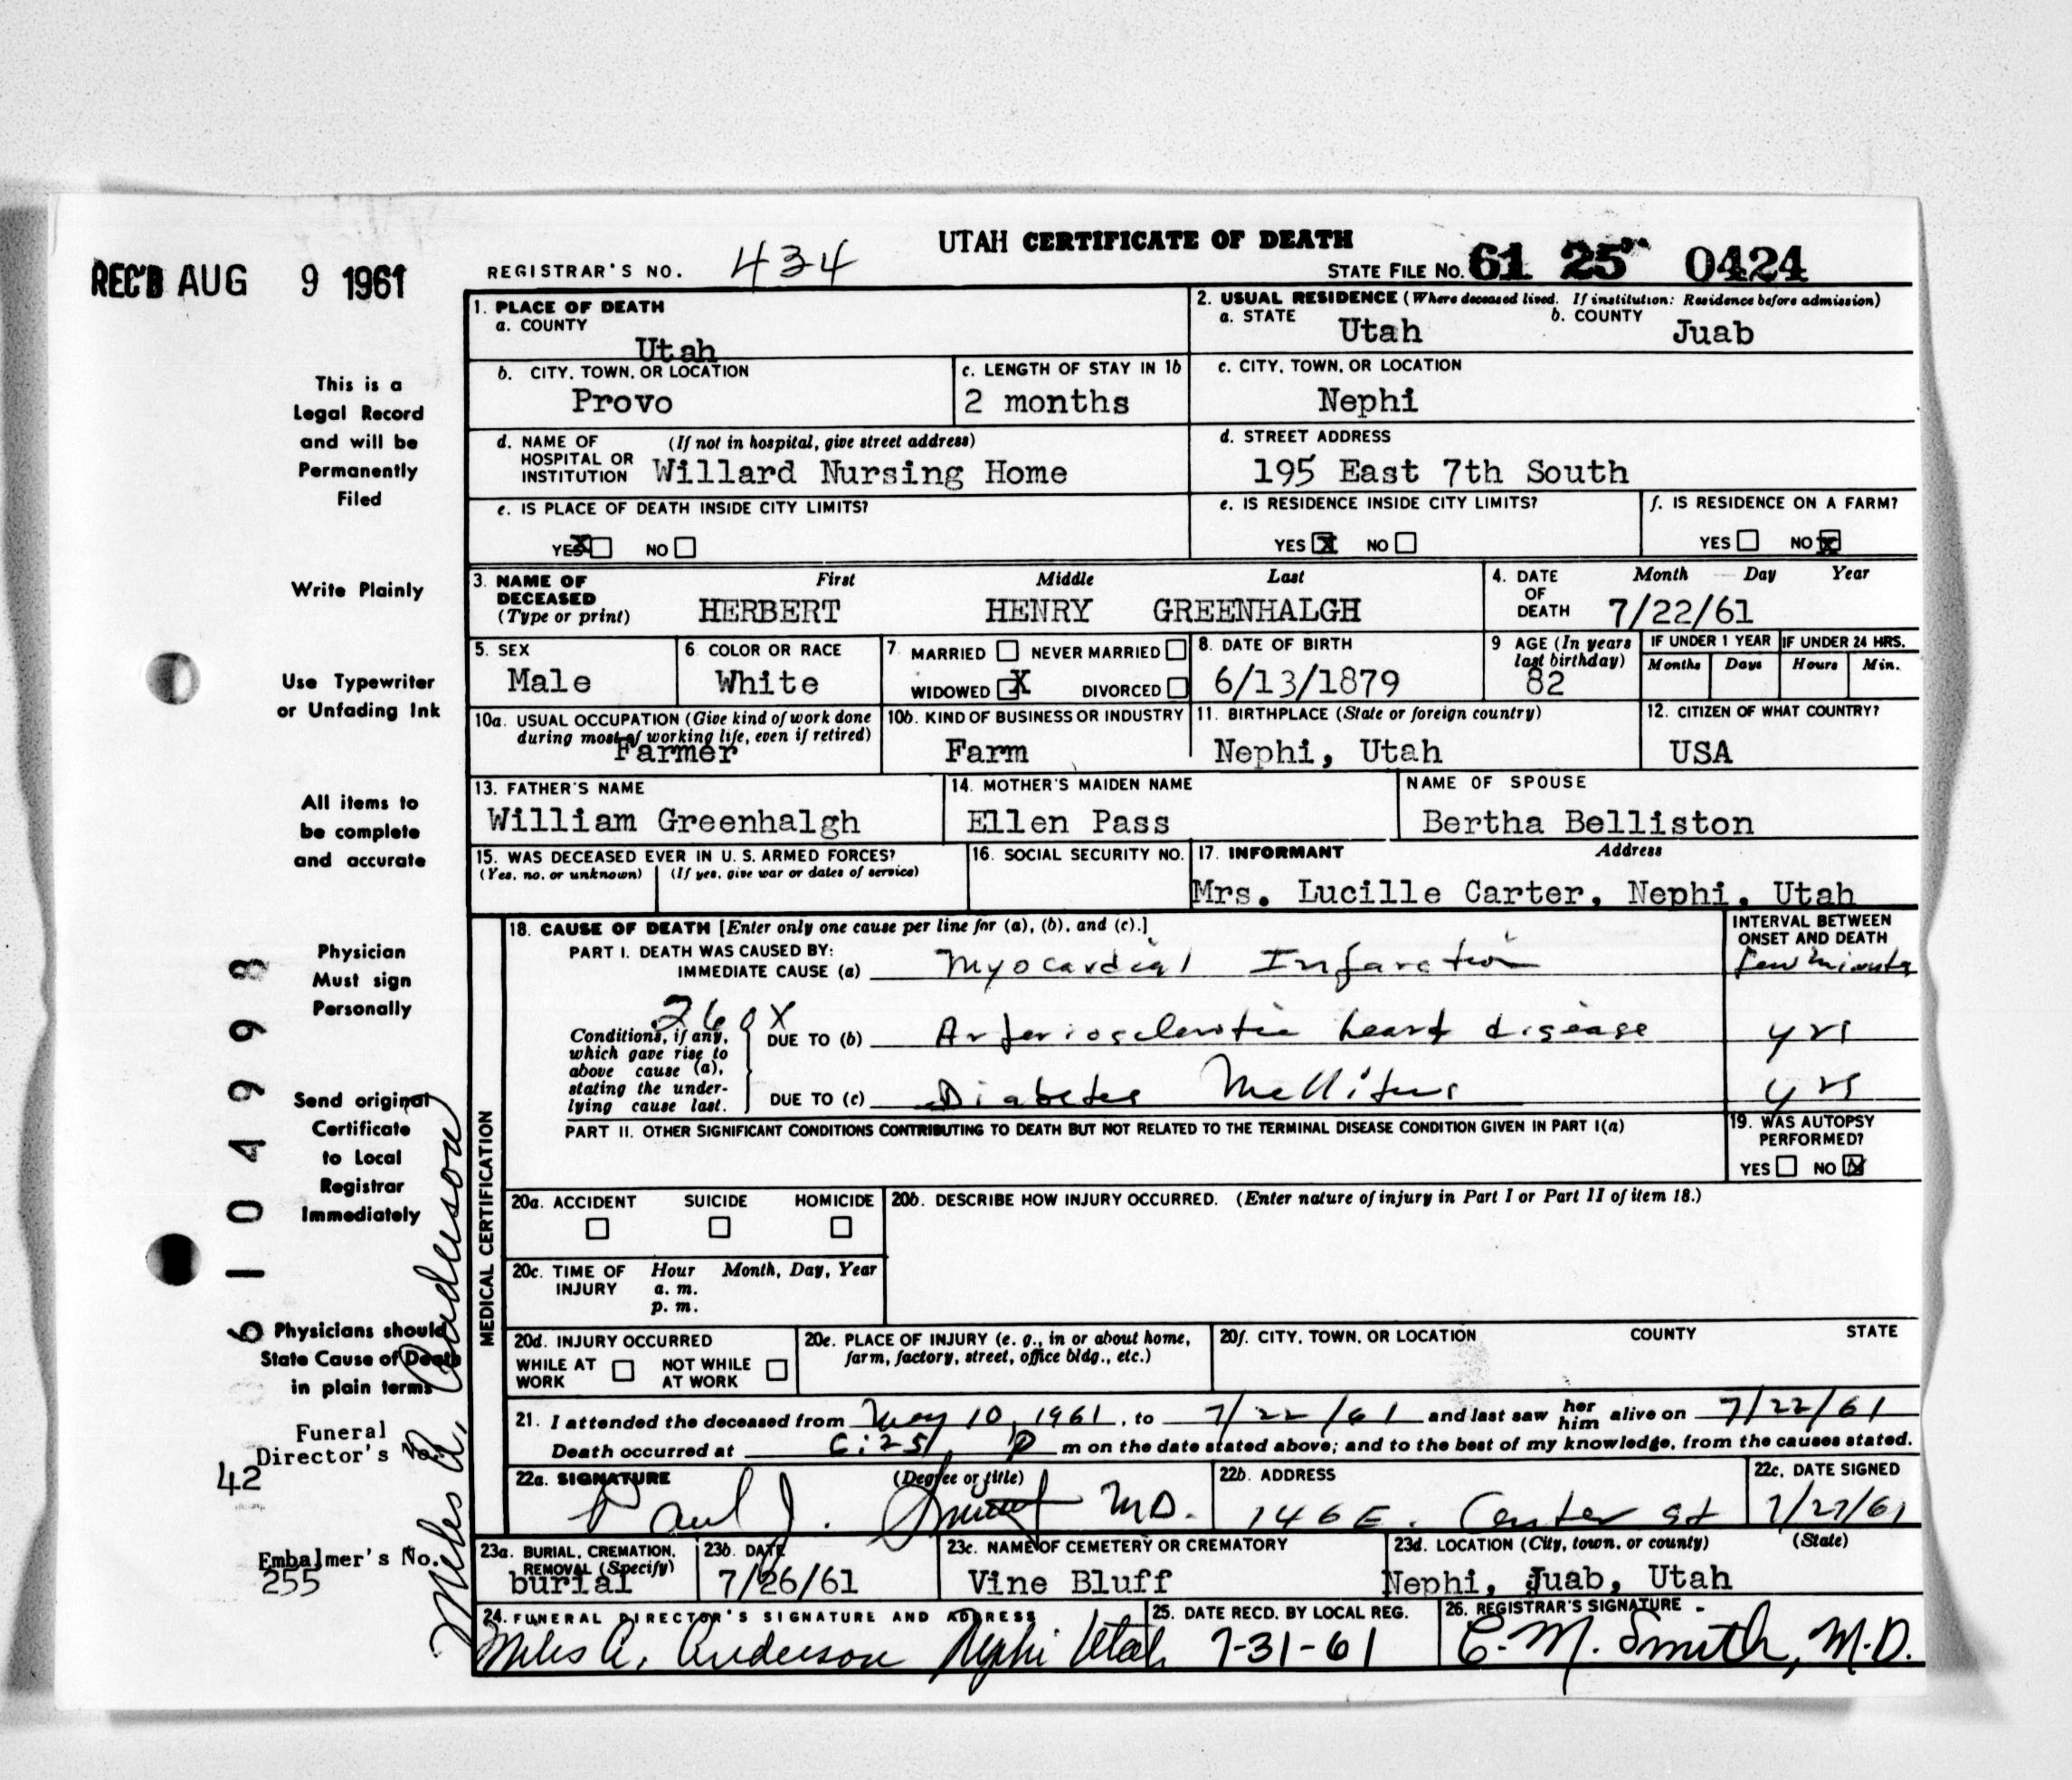 UTAH CERTIFICATE OF DEATH
REC'D AUG 9 1961
REGISTRAR'S NO. 434
STATE FILE NO. 61 25 0424
This is a
Legal Record
and will be
Permanently
Filed
Write Plainly
Use Typewriter
or Unfading Ink
All items to
be complete
and accurate
Physician
Must sign
Personally
Send original
Certificate
to Local
Registrar
Immediately
Physicians should
State Cause of Death
in plain terms
Funeral
Director's No.
42
Embalmer's No.
255
61 04998
Miles A. Anderson
1. PLACE OF DEATH
a. COUNTY
Utah
2. USUAL RESIDENCE (Where deceased lived. If institution: Residence before admission)
a. STATE Utah b. COUNTY Juab
b. CITY, TOWN, OR LOCATION
Provo
c. LENGTH OF STAY IN 1b
2 months
c. CITY, TOWN, OR LOCATION
Nephi
d. NAME OF HOSPITAL OR INSTITUTION (If not in hospital, give street address)
Willard Nursing Home
d. STREET ADDRESS
195 East 7th South
e. IS PLACE OF DEATH INSIDE CITY LIMITS?
YES X NO
e. IS RESIDENCE INSIDE CITY LIMITS?
YES X NO
f. IS RESIDENCE ON A FARM?
YES NO X
3. NAME OF DECEASED (Type or print) First Middle Last
HERBERT HENRY GREENHALGH
4. DATE OF DEATH Month Day Year
7/22/61
5. SEX
Male
6. COLOR OR RACE
White
7. MARRIED NEVER MARRIED
WIDOWED X DIVORCED
8. DATE OF BIRTH
6/13/1879
9 AGE (In years last birthday)
82
IF UNDER 1 YEAR IF UNDER 24 HRS.
Months Days Hours Min.
10a. USUAL OCCUPATION (Give kind of work done during most of working life, even if retired)
Farmer
10b. KIND OF BUSINESS OR INDUSTRY
Farm
11. BIRTHPLACE (State or foreign country)
Nephi, Utah
12. CITIZEN OF WHAT COUNTRY?
USA
13. FATHER'S NAME
William Greenhalgh
14. MOTHER'S MAIDEN NAME
Ellen Pass
NAME OF SPOUSE
Bertha Belliston
15. WAS DECEASED EVER IN U. S. ARMED FORCES?
(Yes, no, or unknown) (If yes, give war or dates of service)
16. SOCIAL SECURITY NO.
17. INFORMANT Address
Mrs. Lucille Carter, Nephi, Utah
MEDICAL CERTIFICATION
18. CAUSE OF DEATH [Enter only one cause per line for (a), (b), and (c).]
INTERVAL BETWEEN ONSET AND DEATH
PART I. DEATH WAS CAUSED BY:
IMMEDIATE CAUSE (a) Myocardial Infarction few minutes
260X
Conditions, if any, which gave rise to above cause (a), stating the underlying cause last.
DUE TO (b) Arteriosclerotic heart disease yrs
DUE TO (c) Diabetes Mellitus yrs
PART II. OTHER SIGNIFICANT CONDITIONS CONTRIBUTING TO DEATH BUT NOT RELATED TO THE TERMINAL DISEASE CONDITION GIVEN IN PART I(a)
19. WAS AUTOPSY PERFORMED?
YES NO X
20a. ACCIDENT SUICIDE HOMICIDE
20b. DESCRIBE HOW INJURY OCCURRED. (Enter nature of injury in Part I or Part II of item 18.)
20c. TIME OF INJURY Hour Month, Day, Year
a. m.
p. m.
20d. INJURY OCCURRED
WHILE AT WORK NOT WHILE AT WORK
20e. PLACE OF INJURY (e. g., in or about home, farm, factory, street, office bldg., etc.)
20f. CITY, TOWN, OR LOCATION COUNTY STATE
21. I attended the deceased from May 10, 1961, to 7/22/61 and last saw her him alive on 7/22/61
Death occurred at 6:25 P m on the date stated above; and to the best of my knowledge, from the causes stated.
22a. SIGNATURE (Degree or title)
Paul J. M.D.
22b. ADDRESS
146 E. Center St
22c. DATE SIGNED
7/27/61
23a. BURIAL, CREMATION, REMOVAL (Specify)
burial
23b. DATE
7/26/61
23c. NAME OF CEMETERY OR CREMATORY
Vine Bluff
23d. LOCATION (City, town, or county) (State)
Nephi, Juab, Utah
24. FUNERAL DIRECTOR'S SIGNATURE AND ADDRESS
Miles A. Anderson Nephi Utah
25. DATE RECD. BY LOCAL REG.
7-31-61
26. REGISTRAR'S SIGNATURE
C. M. Smith, M.D.